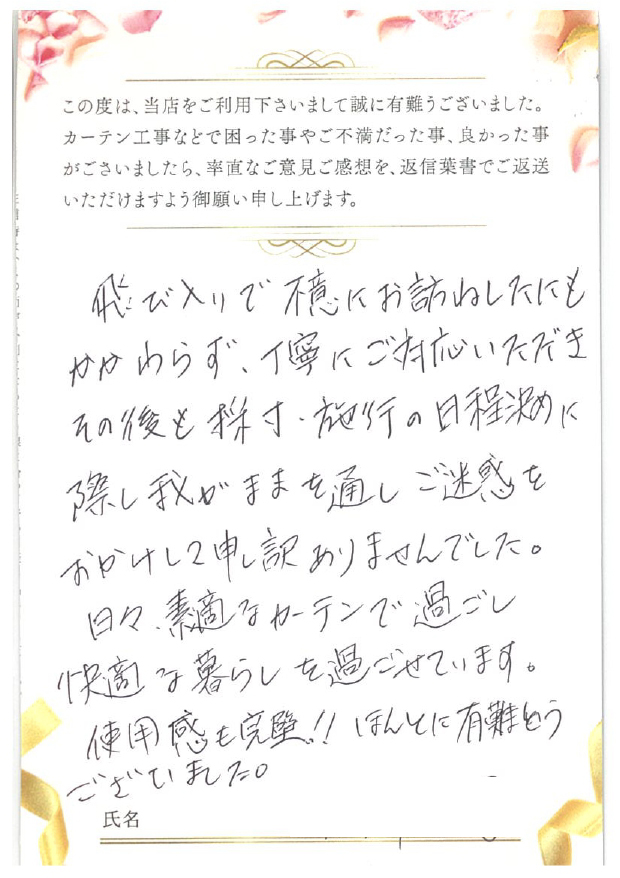 この度は、当店をご利用下さいまして誠に有難うございました。
カーテン工事などで困った事やご不満だった事、良かった事
がございましたら、率直なご意見ご感想を、返信葉書でご返送
いただけますよう御願い申し上げます。
飛び入りで不意にお訪ねしたにも
かかわらず、丁寧にご対応いただき
その後も採寸・施行の日程決めに
際し我がままを通しご迷惑を
おかけして申し訳ありませんでした。
日々、素適なカーテンで過ごし
快適な暮らしを過ごせています。
使用感も完璧!! ほんとに有難とう
ございました。
氏名